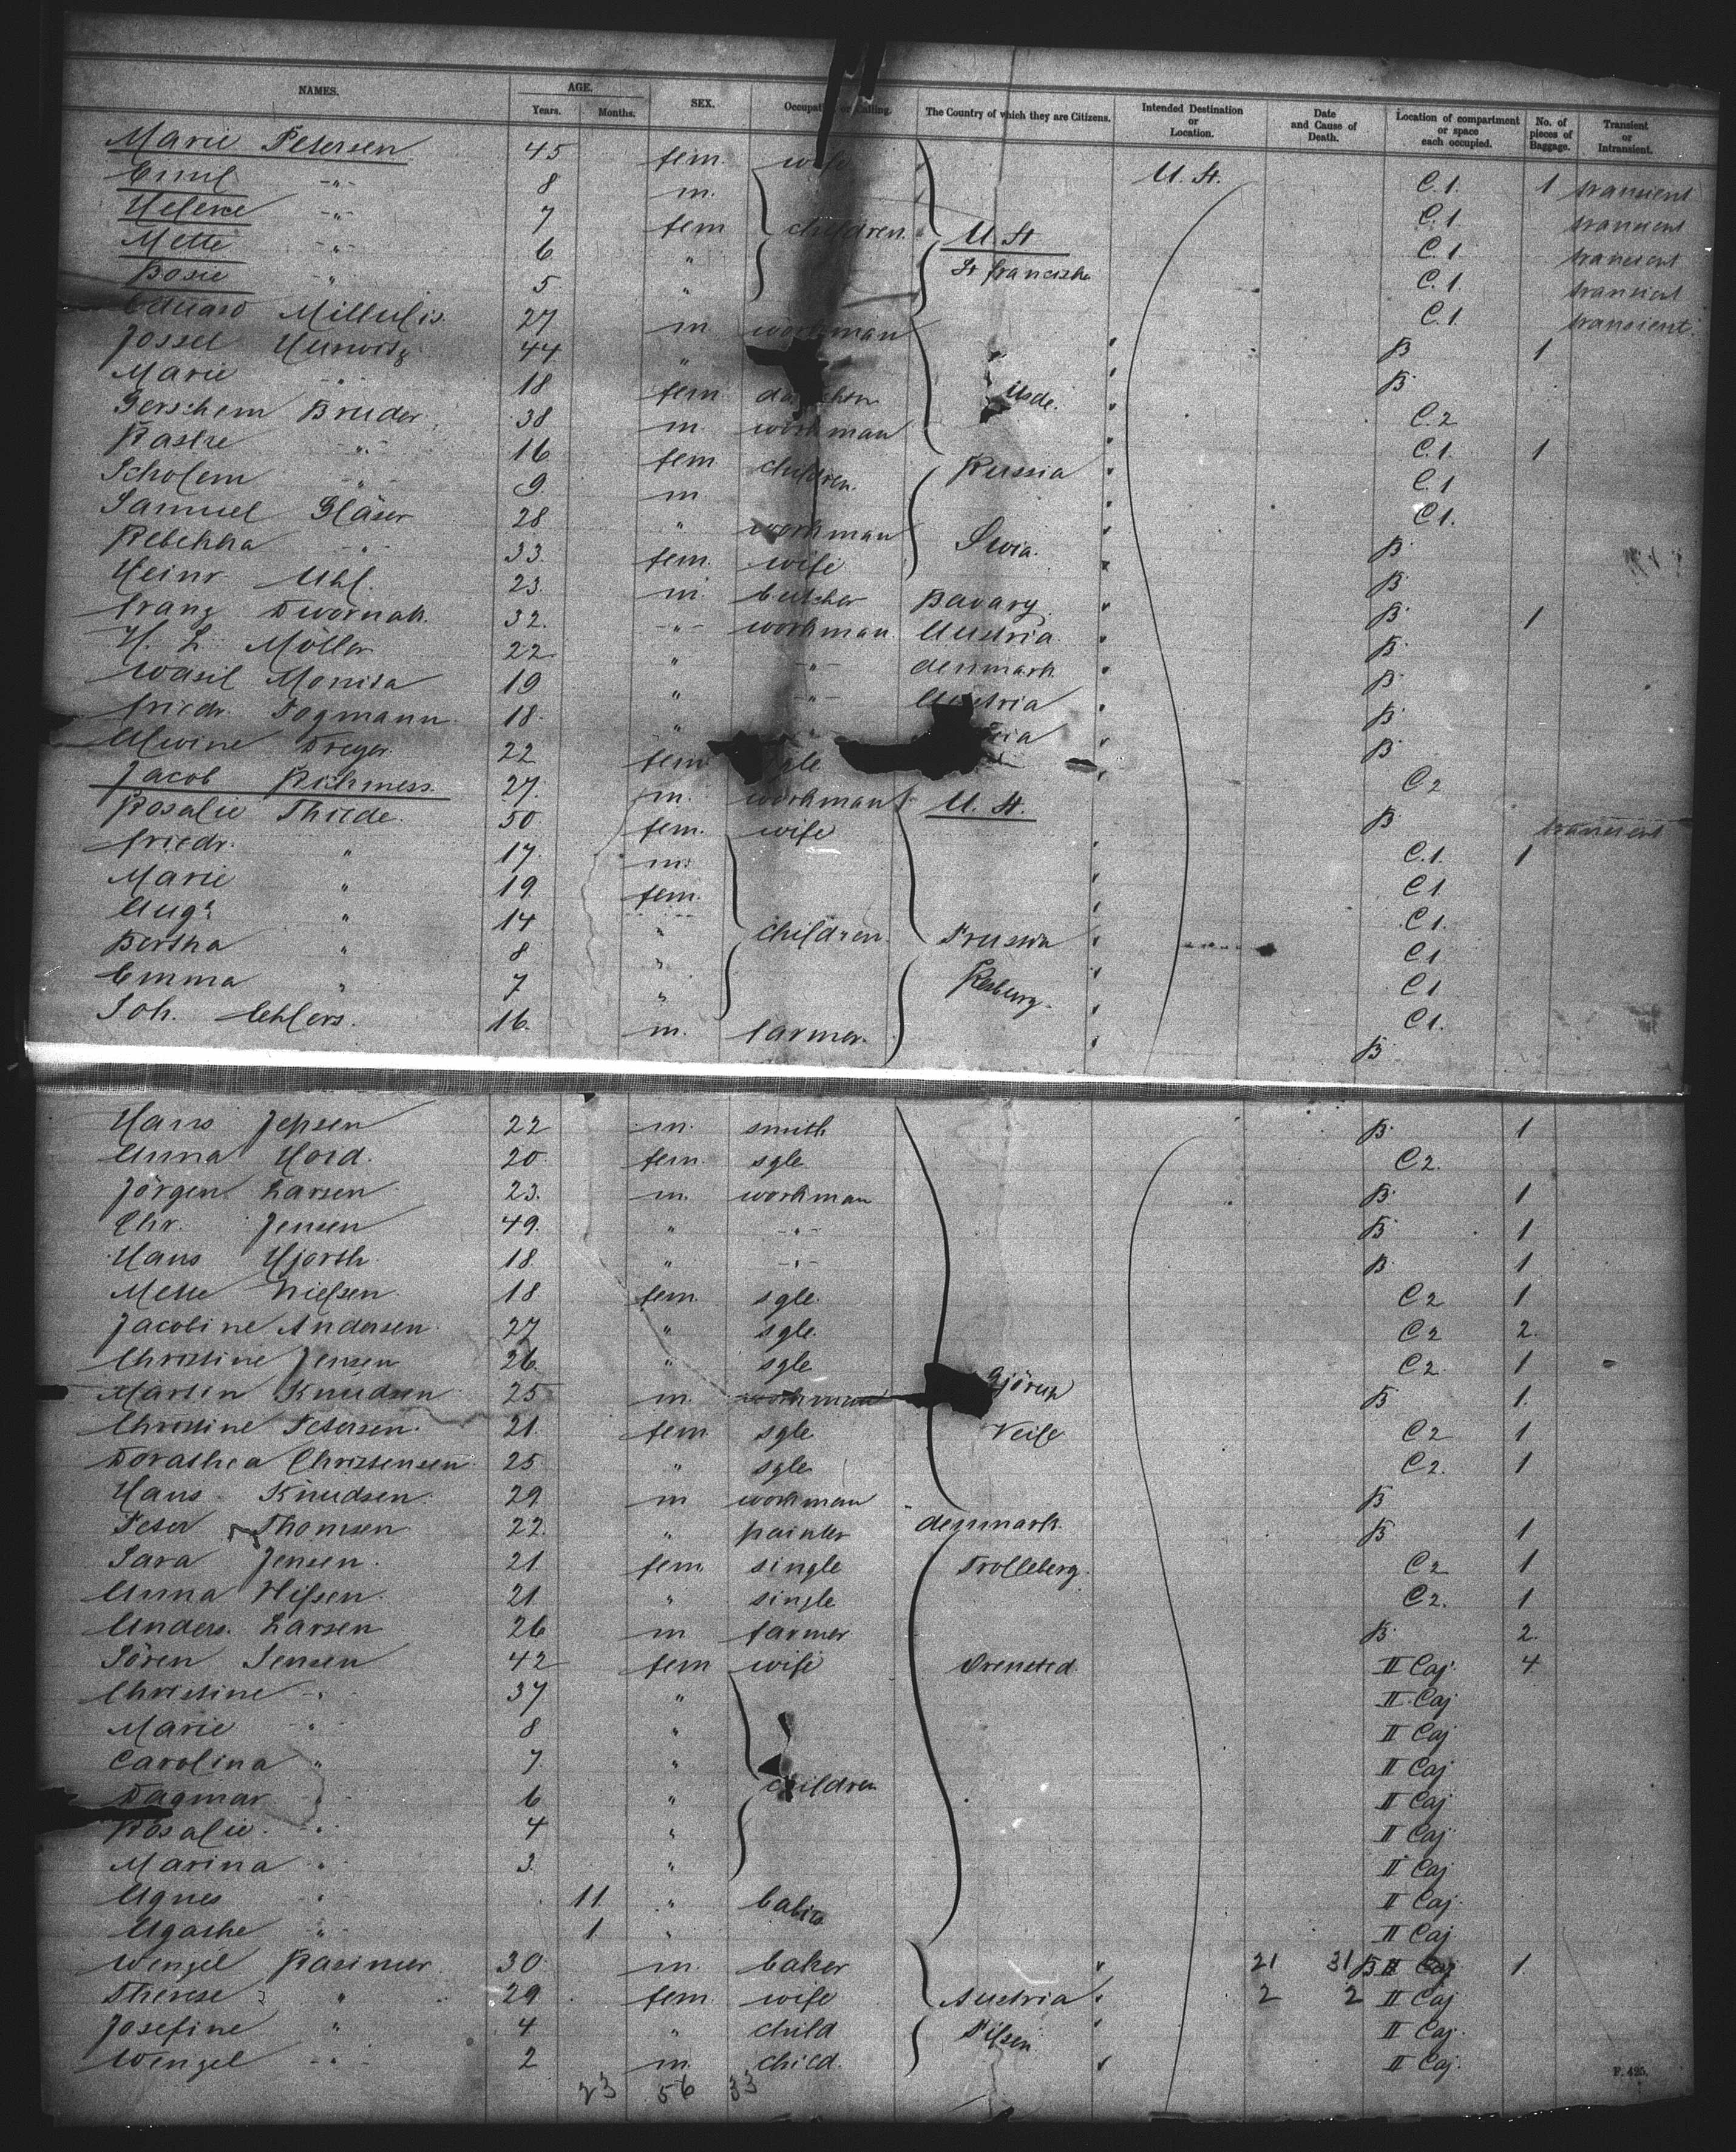 NAMES. AGE. SEX. Occupation or Calling. The Country of which they are Citizens. Intended Destination or Location. Date and Cause of Death. Location of compartment or space each occupied. No. of pieces of Baggage. Transient or Intransient.
Years. Months.
Marie Petersen 45 fem. wife U. St. C.1. 1 transient
Emil -"- 8 m. C.1. transient
Helene -"- 7 fem children. U. St C.1 transient
Mette " 6 " St francisko C.1. transient
" 5 " C.1. transient
Eduard 27 m workman B 1
Jossel Hurwitz 44 " B
Marie " 18 fem C.2
Gerschem Bruder 38 m. workman C.1. 1
16 fem children. Russia C.1
Scholem " 9. m C1.
Samuel Gläser 28 " workman B
Rebekka -"- 33. fem. wife B
Heinr. Uhl. 23 m. butcher Bavary B 1
Franz Dwornak. 32. -"- workman. Austria. B
H. L. Möller 22 " -"- denmark B
Wasil Monisa 19 " -"- Austria B
Friedr. Pogmann 18. " B
Alwine Dreyer. 22 fem C2
Jacob 27. m. workman U. St. B transient
Rosalie Thiede. 50 fem. wife C.1. 1
Friedr. " 17. m. C1.
Marie " 19. fem. C1.
Aug. " 14 " children. Prussia C1
Bertha " 8 " C1
Emma " 7 " C1.
Joh. Ehlers. 16. m. farmer. B
Hans Jepsen 22 m. smith B 1
Anna Hord. 20 fem. sgle C2.
Jörgen Larsen 23. m. workman B 1
Chr. Jensen 49. " -"- B 1
Hans Hjorth 18. " -"- B 1
Mette Nielsen 18 fem. sgle. C2 1
Jacobine Andersen 27 " sgle. C2 2.
Christine Jensen 26 " sgle C2. 1
Martin Knudsen 25 m. workman Gjörup B 1.
Christine Petersen. 21. fem. sgle Veile C2 1
Dorathea Christensen 25 " sgle C2. 1
Hans Knudsen. 29 m workman B
Peter Thomsen 22. " painter denmark. B 1
Sara Jensen. 21 fem. single Trolleberg. C2 1
Anna Nielsen. 21 " single C2. 1
Anders. Larsen 26 m farmer B 2.
Sören Jensen 42 fem wife II Caj. 4
Christine -"- 37 " II Caj
Marie " 8 " II Caj
Carolina " 7. " children II Caj
Dagmar " 6 " II Caj
Rosalie. -"- 4 " II Caj
Marina " 3. " II Caj
Agnes " 11 " babies II Caj.
Agathe " 1 " II Caj
Wenzel Kasimer. 30. m. baker " 21 31 B II Caj 1.
Therese " 29 fem. wife Austria " 2 2 II Caj
Josefine " 4 " child Pilsen " II Caj.
Wenzel -"- 2 m. child. " II Caj.
23 56 33
F. 425.